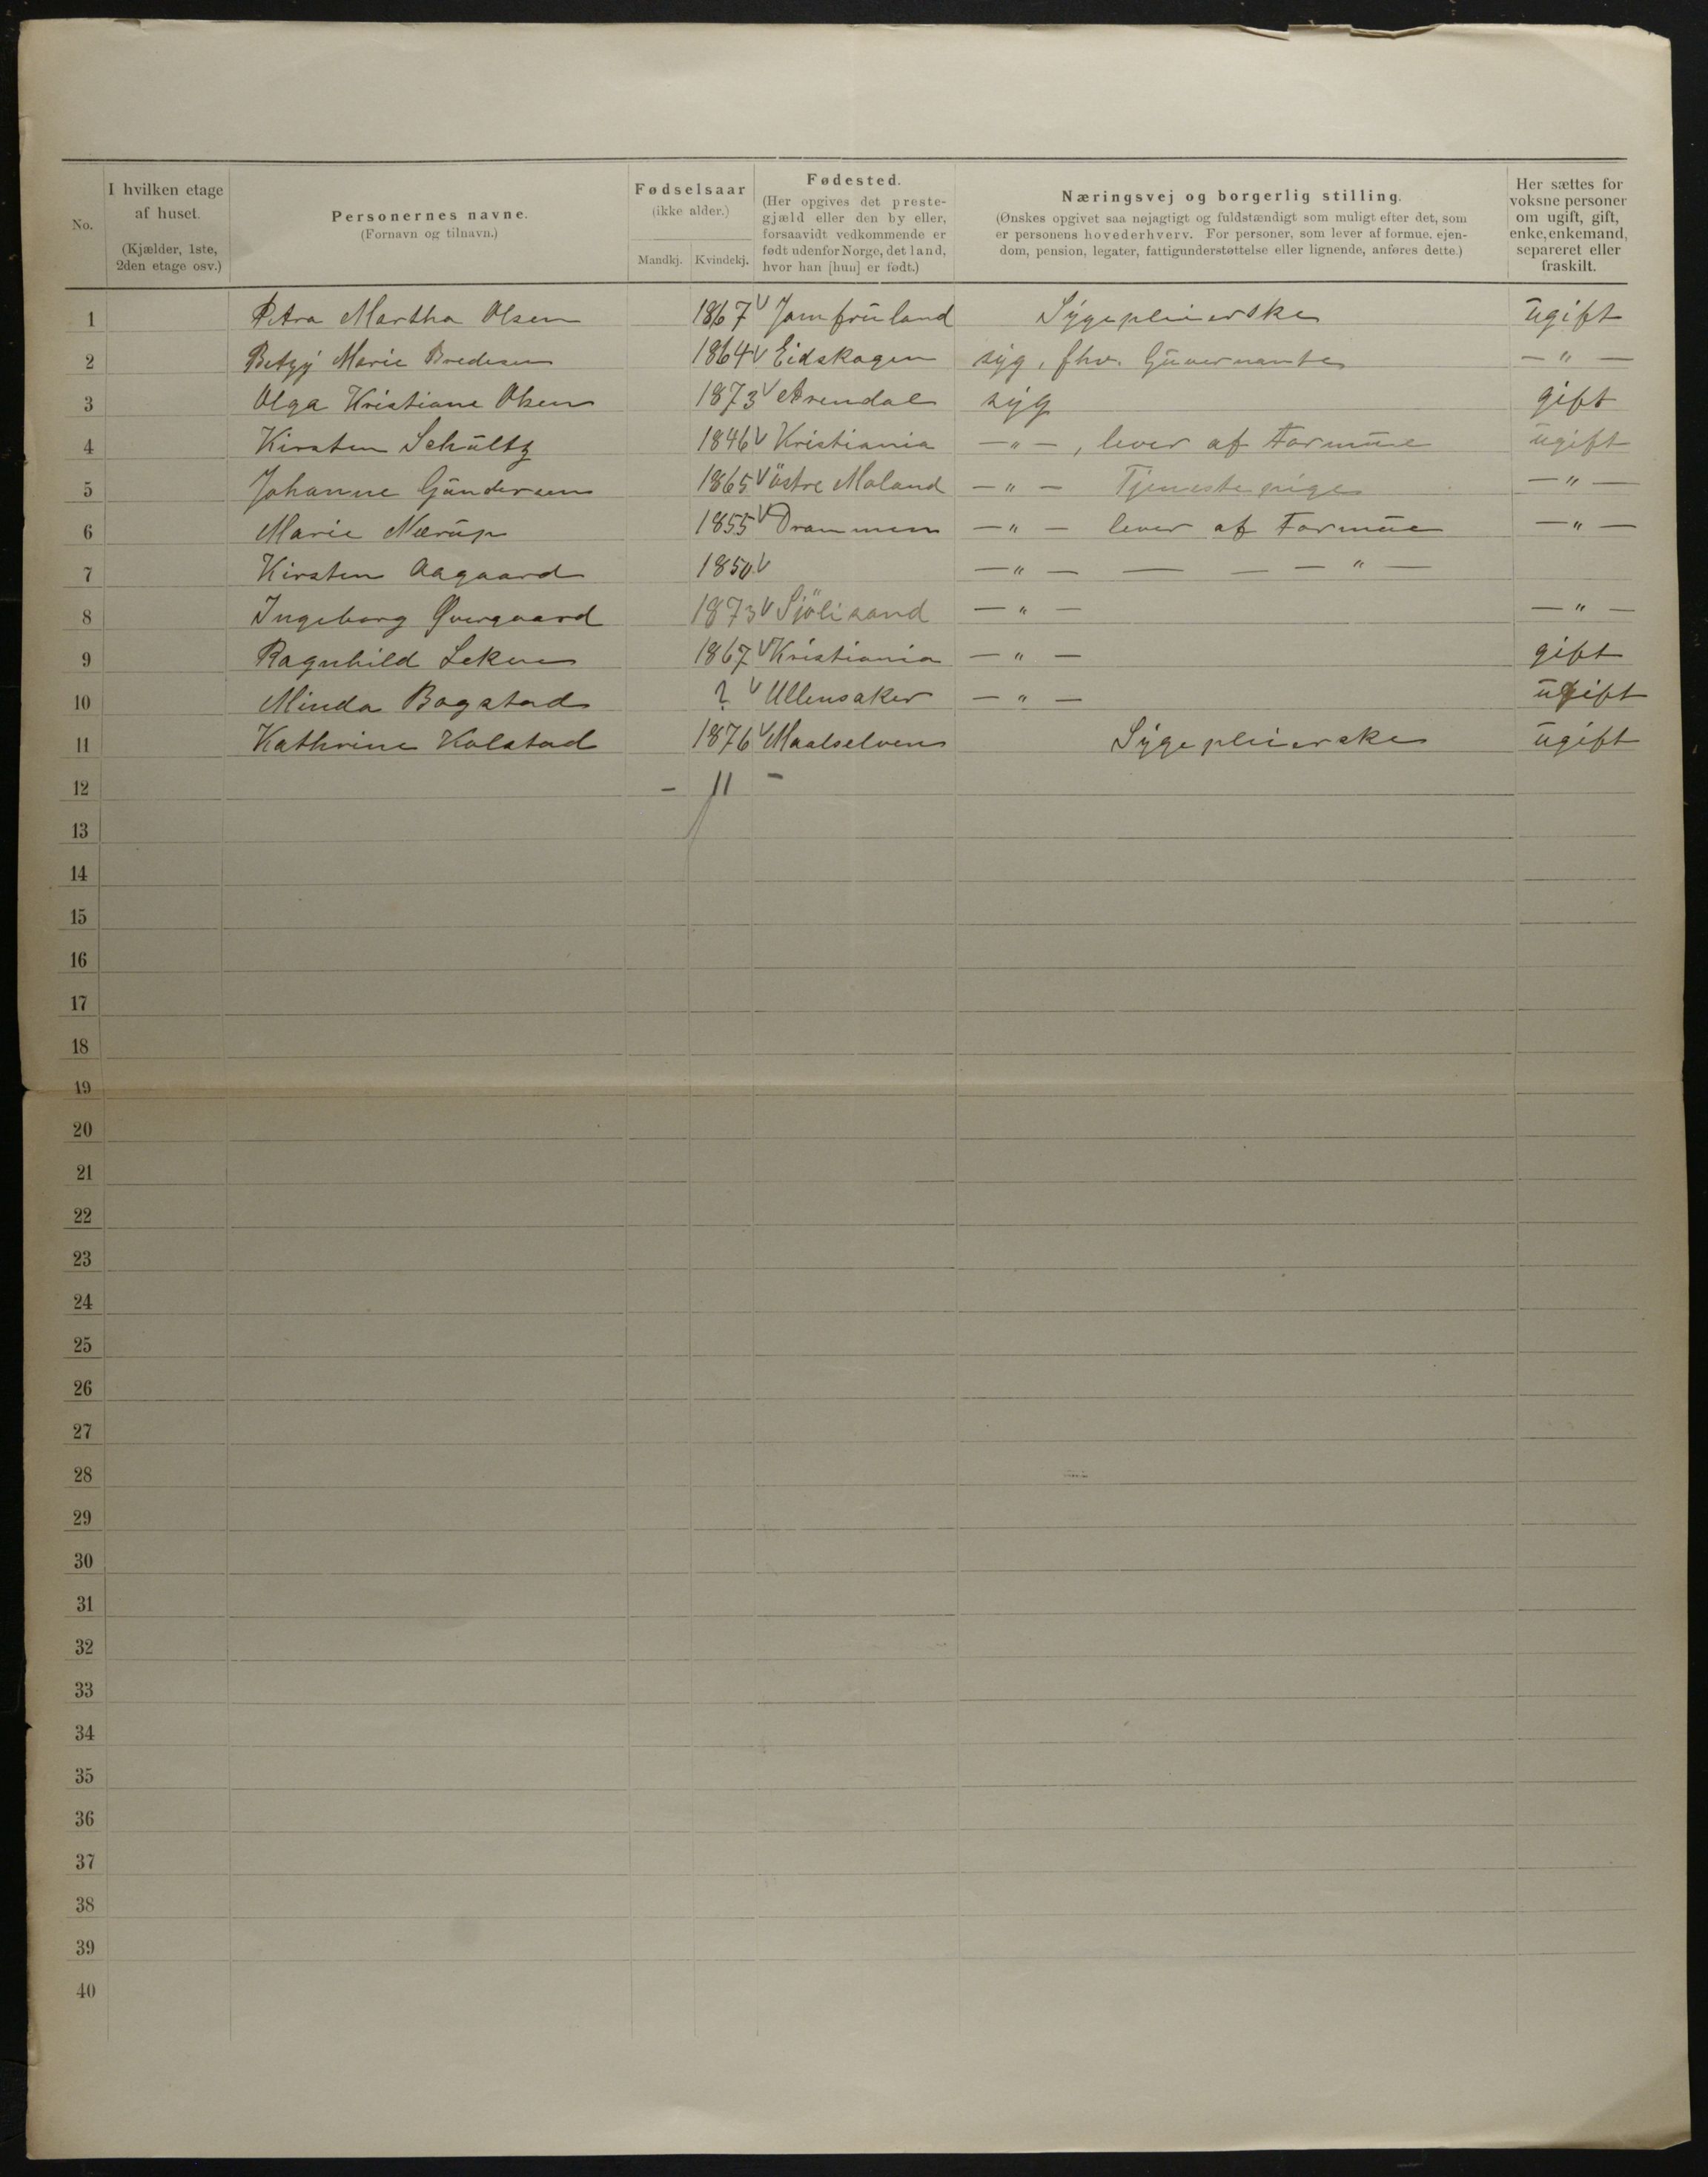 No. I hvilken etage af huset. (Kjælder, 1ste, 2den etage osv.) Personernes navne. (Fornavn og tilnavn.) Fødselsaar (ikke alder.) Mandkj. Kvindekj. Fødested. (Her opgives det prestegjæld eller den by eller, forsaavidt vedkommende er født udenfor Norge, det land, hvor han [hun] er født.) Næringsvej og borgerlig stilling. (Ønskes opgivet saa nøjagtigt og fuldstændigt som muligt efter det, som er personens hovederhverv. For personer, som lever af formue, ejendom, pension, legater, fattigunderstøttelse eller lignende, anføres dette.) Her sættes for voksne personer om ugift, gift, enke, enkemand, separeret eller fraskilt.
1 Petra Martha Olsen 1867 v Jomfruland Sygepleierske ugift
2 Betzy Marie Bredesen 1864 v Eidskogen syg, fhv. Guvernante — " —
3 Olga Kristiane Olsen 1873 v Arendal syg gift
4 Kirsten Schultz 1846 v Kristiania — " — , lever af Formue ugift
5 Johanne Gundersen 1865 v östre Moland — " — Tjenestepige — " —
6 Marie Nærup 1855 v Drammen — " — lever af Formue — " —
7 Kirsten Aagaard 1850 v — " — — — — " —
8 Ingeborg Overgaard 1873 v Sjölisand — " — — " —
9 Ragnhild Leken 1867 v Kristiania — " — gift
10 Minda Bogstad ? v Ullensaker — " — ugift
11 Kathrine Kolstad 1876 v Maalselven Sygepleierske ugift
12 – 11 –
13
14
15
16
17
18
19
20
21
22
23
24
25
26
27
28
29
30
31
32
33
34
35
36
37
38
39
40